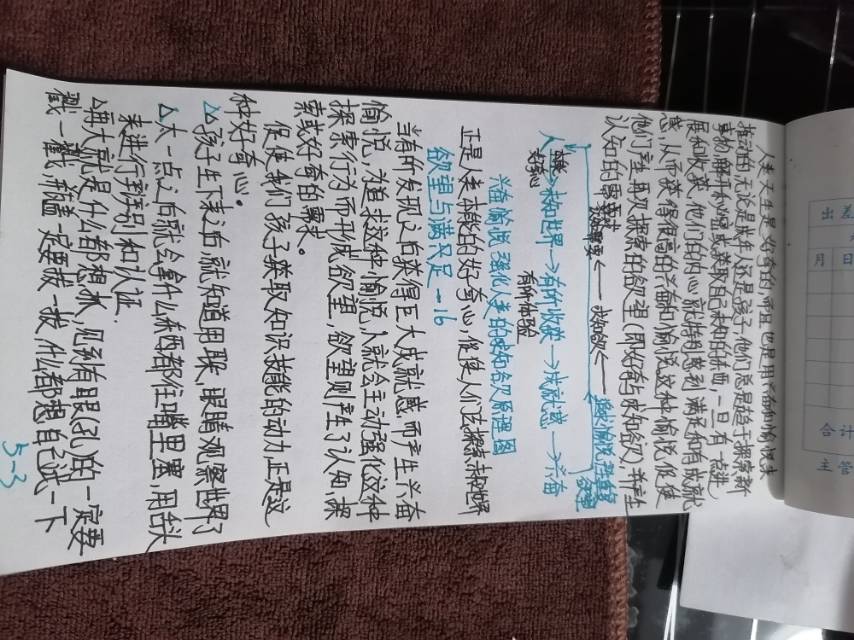 人类天生是好奇的,而且也是用兴奋和愉悦来
推动的,无论是成年人还是孩子,他们总是趋于探索新
事物,解开心里或获取自己未知的东西,一旦有一点进
展和收获,他们的内心就特别感到满足和有成就
感,从而获得很高的兴奋和愉悦,这种愉悦促使
他们产生再次探索的欲望(即好奇与求知欲),并产生
认知的需要
求知欲
人
好奇心
求知世界→有所收获→成就感→兴奋
有所体验
兴奋愉悦强化人类的求知欲原理图
正是人类本能的好奇心,促使人们去探索未知世界
欲望与满足-16
当有所发现之后获得巨大成就感而产生兴奋
愉悦,为追求这种愉悦,人就会主动强化这种
探索行为而形成欲望,欲望则产生了认知、探
索或好奇的需求。
促使我们孩子获取知识技能的动力正是这
种好奇心。
△孩子生下来之后,就知道用眼睛观察世界了
△大一点之后就会拿什么东西都往嘴里塞,用舌头
来进行予鉴别和认证.
△再大就是什么都想抓,见到有眼(孔)的一定要
戳一戳,瓶盖一定要拔一拔,什么都想自己试一下
5-3
出差
月 日
合计
主管